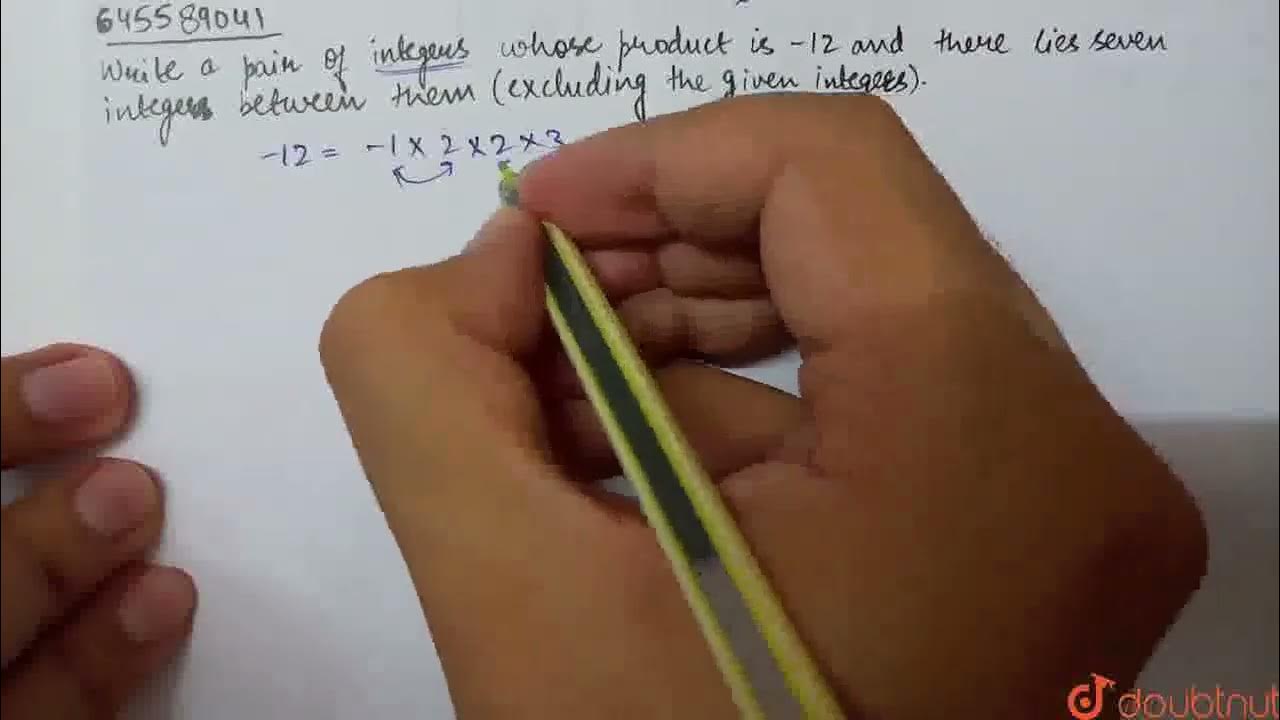 645589041
Write a pair of integers whose product is -12 and there lies seven
integers between them (excluding the given integers).
-12 = -1 × 2 × 2 × 3
doubtnut